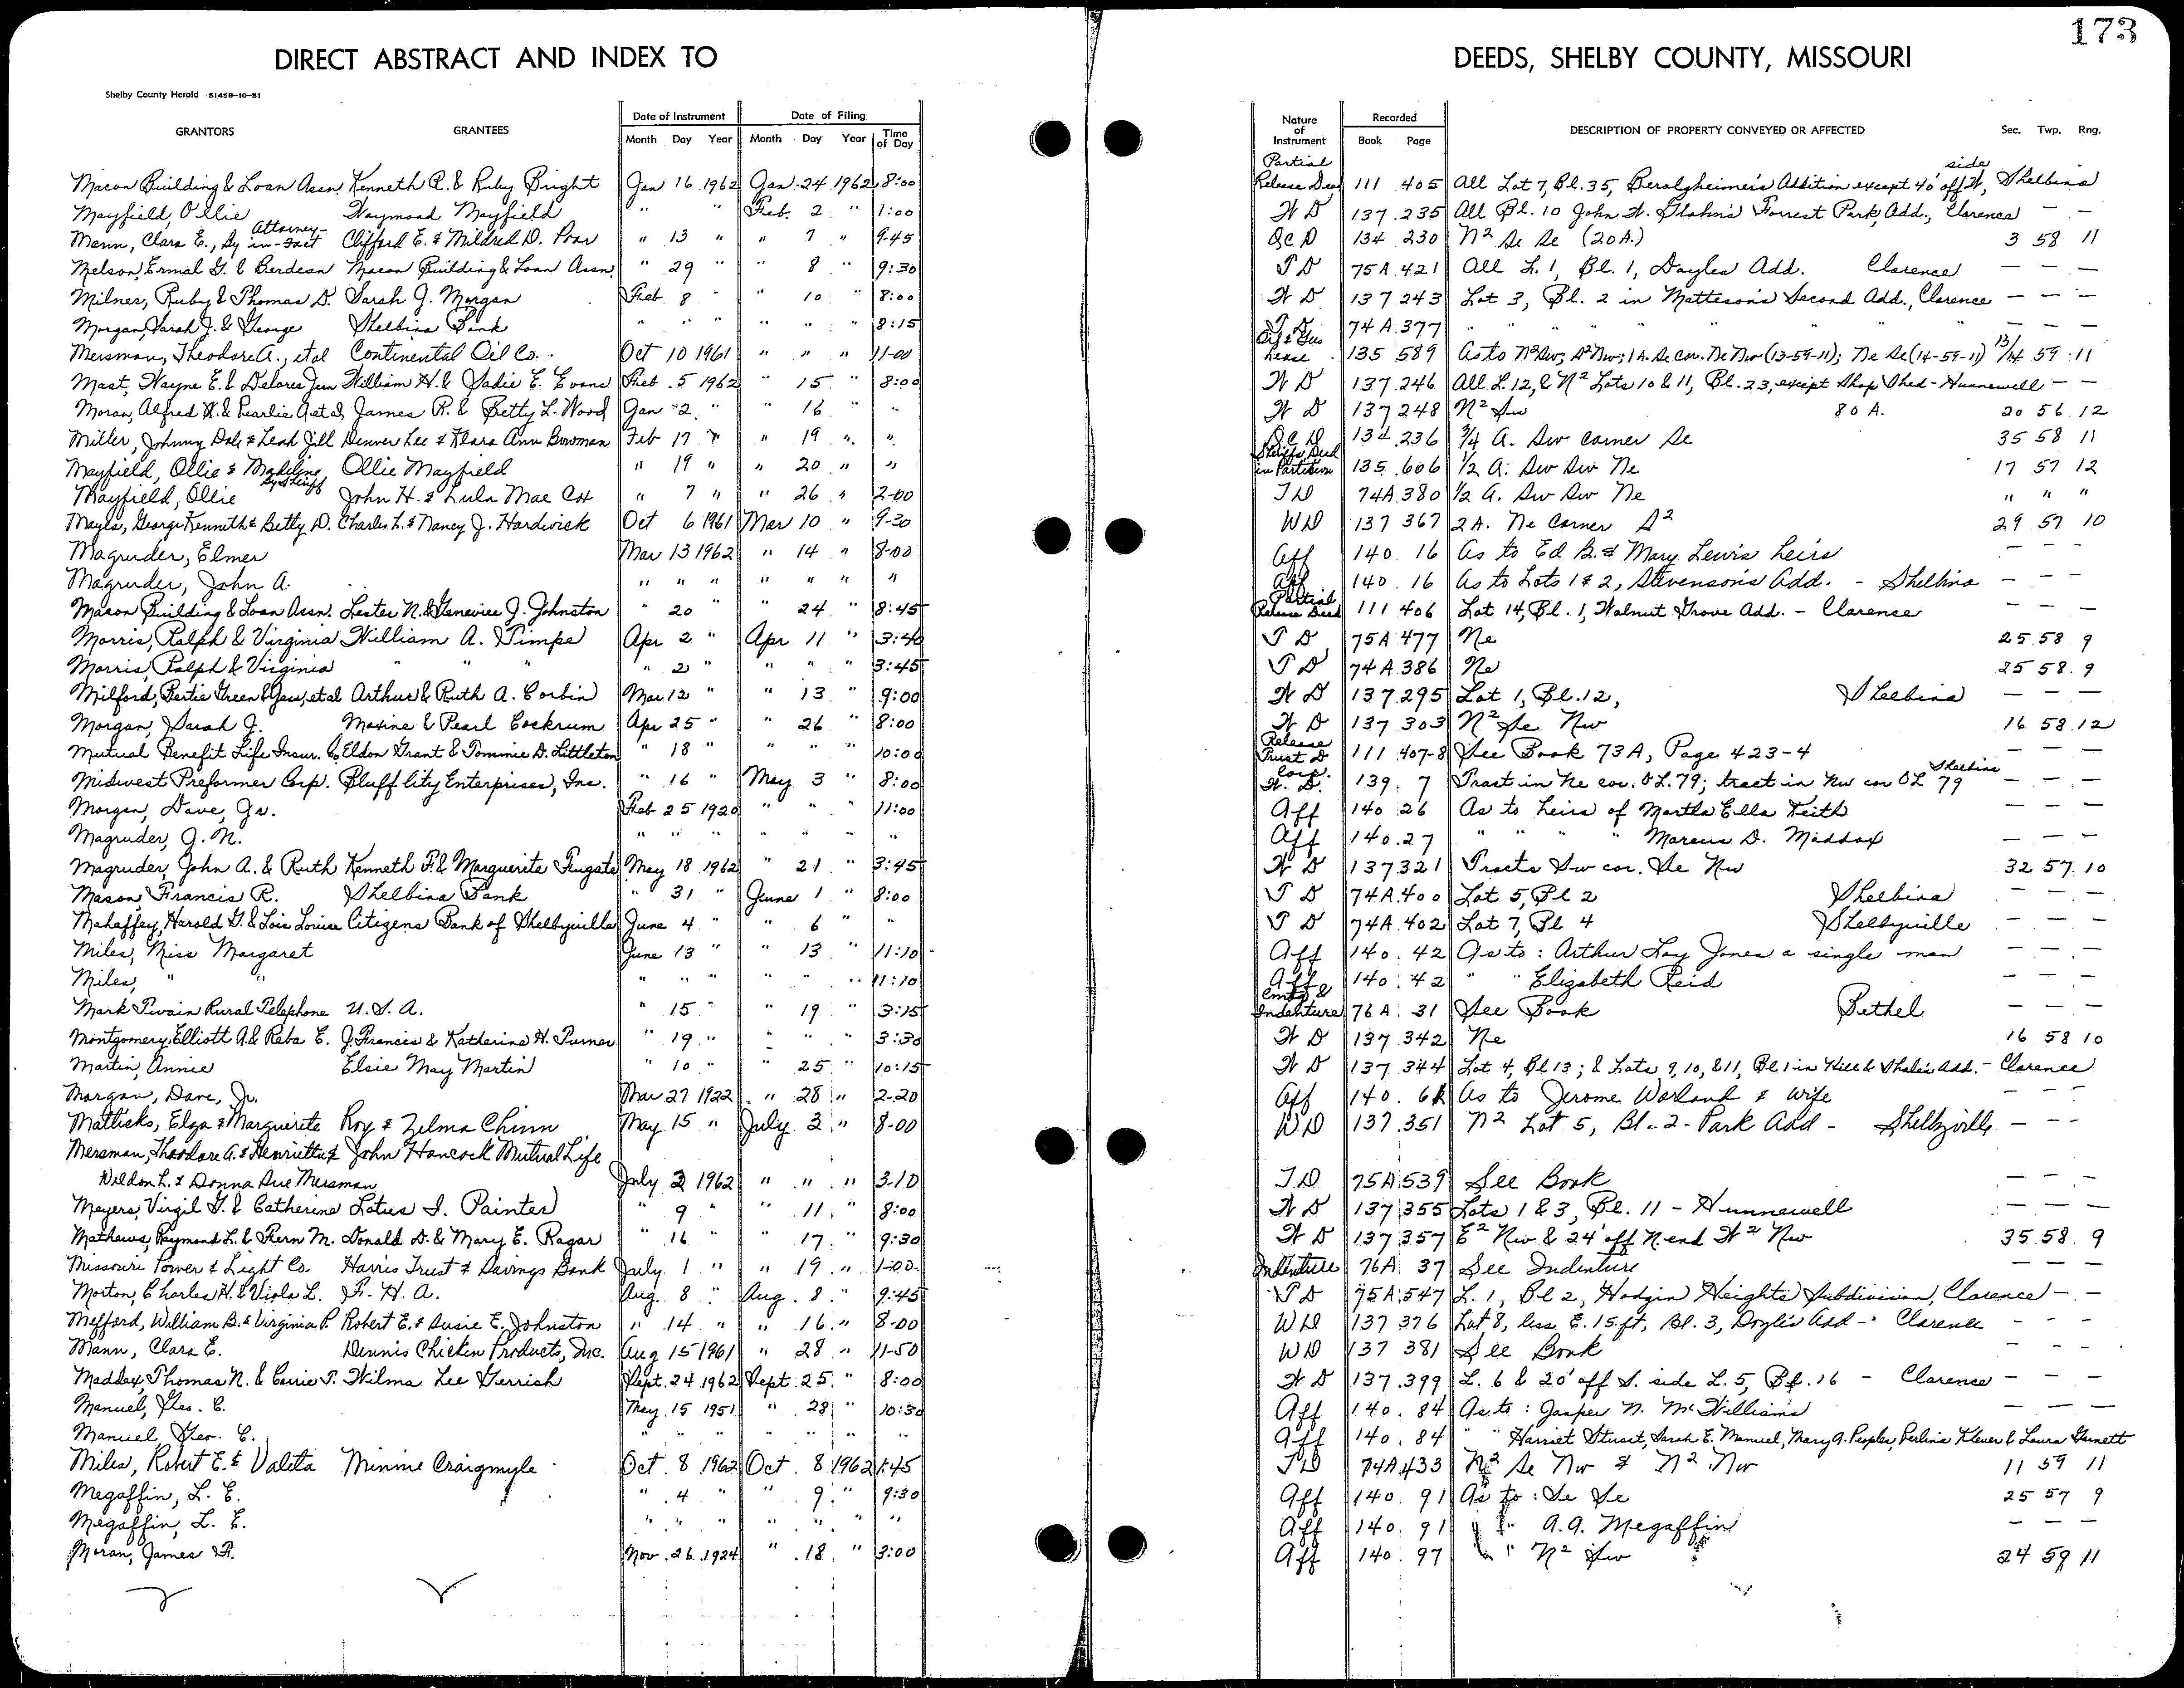 173
DIRECT ABSTRACT AND INDEX TO DEEDS, SHELBY COUNTY, MISSOURI
Shelby County Herald 51458-10-51
GRANTORS GRANTEES Date of Instrument Month Day Year Date of Filing Month Day Year Time of Day Nature of Instrument Recorded Book Page DESCRIPTION OF PROPERTY CONVEYED OR AFFECTED Sec. Twp. Rng.
Macon Building & Loan Assn. Kenneth R. & Ruby Bright Jan 16 1962 Jan. 24 1962 8:00 Partial Release Deed 111 405 All Lot 7, Bl. 35, Beralzheimer's Addition except 40' off W, side Shelbina
Mayfield, Ollie Waymond Mayfield " " Feb. 2 " 1:00 W D 137 235 All Bl. 10 John W. Glahn's Forrest Park Add., Clarence — —
Mann, Clara E., By Attorney-in-fact Clifford E. & Mildred D. Poor " 13 " " 7 " 9-45 Qc D 134 230 N2 Se Se (20A.) 3 58 11
Melson, Ermal G. & Berdean Macon Building & Loan Assn. " 29 " " 8 " 9:30 T D 75A 421 All L. 1, Bl. 1, Dayles Add. Clarence — — —
Milner, Ruby & Thomas D. Sarah J. Morgan Feb. 8 " " 10 " 8:00 W D 137 243 Lot 3, Bl. 2 in Matteson's Second Add., Clarence — — —
Morgan, Sarah J. & George Shelbina Bank " " " " " " 8:15 T D 74A 377 " " " " " " — — —
Mersman, Theodore A., etal Continental Oil Co. Oct 10 1961 " " " 11-00 Oil & Gas Lease 135 589 As to N2Sw; S2Nw; 1A. Se cor. Ne Nw (13-59-11); Ne Se (14-59-11) 13/14 59 11
Mast, Wayne E. & Delores Jean William H. & Sadie E. Evans Feb. 5 1962 " 15 " 8:00 W D 137 246 All L. 12, & N2 Lots 10 & 11, Bl. 23, except Shop Shed - Hunnewell — —
Moran, Alfred W. & Pearlie A etal James R. & Betty L. Wood Jan 2 " " 16 " " W D 137 248 N2 Sw 80 A. 20 56 12
Miller, Johnny Dale & Leah Jill Denver Lee & Klara Ann Bowman Feb 17 " " 19 " " Qc D 134 236 3/4 A. Sw corner Se 35 58 11
Mayfield, Ollie & Madeline By Sheriff Ollie Mayfield " 19 " " 20 " " Sheriff's Deed in Partition 135 606 1/2 A. Sw Sw Ne 17 57 12
Mayfield, Ollie John H. & Lula Mae Cox " 7 " " 26 " 2-00 T D 74A 380 1/2 A. Sw Sw Ne " " "
Mayes, George Kenneth & Betty D. Charles L. & Nancy J. Hardwick Oct 6 1961 Mar 10 " 9-30 WD 137 367 2A. Ne Corner S2 29 57 10
Magruder, Elmer Mar 13 1962 " 14 " 8-00 Aff 140 16 As to Ed B. & Mary Lewis heirs — — —
Magruder, John A. " " " " " " " Aff 140 16 As to Lots 1 & 2, Stevenson's Add. - Shelbina — — —
Macon Building & Loan Assn. Lester N. & Genevieve J. Johnston " 20 " " 24 " 8:45 Partial Release Deed 111 406 Lot 14, Bl. 1, Walnut Grove Add. - Clarence — — —
Morris, Ralph & Virginia William A. Timpe Apr 2 " Apr. 11 " 3:40 T D 75A 477 Ne 25 58 9
Morris, Ralph & Virginia " " " " 2 " " " " 3:45 T D 74A 386 Ne 25 58 9
Milford, Bertie Green & Jess, etal Arthur & Ruth A. Corbin Mar. 12 " " 13 " 9:00 W D 137 295 Lot 1, Bl. 12, Shelbina — — —
Morgan, Sarah J. Maxine & Pearl Cockrum Apr 25 " " 26 " 8:00 W D 137 303 N2 Se Nw 16 58 12
Mutual Benefit Life Insur. Co. Eldon Grant & Tommie D. Littleton " 18 " " " " 10:00 Release Trust D 111 407-8 See Book 73A, Page 423-4 — — —
Midwest Preformer Corp. Bluff City Enterprises, Inc. " 16 " May 3 " 8:00 Corp. W. D. 139 7 Tract in Ne cor. OL. 79; tract in Nw cor OL 79 Shelbina — — —
Morgan, Dave, Jr. Feb 25 1920 " " " 11:00 Aff 140 26 As to heirs of Martha Ella Keith
Magruder, J. N. " " " " " " " Aff 140 27 " " " Marcus D. Maddox — — —
Magruder, John A. & Ruth Kenneth F. & Marguerite Fugate May 18 1962 " 21 " 3:45 W D 137 321 Tracts Sw cor. Se Nw 32 57 10
Mason, Francis R. Shelbina Bank " 31 " June 1 " 8:00 T D 74A 400 Lot 5, Bl 2 Shelbina — — —
Mahaffey, Harold G. & Lois Louise Citizens Bank of Shelbyville June 4 " " 6 " " T D 74A 402 Lot 7, Bl 4 Shelbyville — — —
Miles, Miss Margaret June 13 " " 13 " 11:10 Aff 140 42 As to: Arthur Loy Jones a single man — — —
Miles, " " " " " " " " 11:10 Aff 140 42 " " Elizabeth Reid — — —
Mark Twain Rural Telephone U. S. A. " 15 " " 19 " 3:15 Indenture 76A 31 See Book Bethel — — —
Montgomery, Elliott A. & Reba E. J. Francis & Katherine H. Turner " 19 " " " " 3:30 W D 137 342 Ne 16 58 10
Martin, Annie Elsie May Martin " 10 " " 25 " 10:15 W D 137 344 Lot 4, Bl 13; & Lots 9, 10, & 11, Bl 1 in Hill & Shale's Add. - Clarence
Morgan, Dave, Jr. Mar 27 1922 " 28 " 2-20 Aff 140 61 As to Jerome Worland & wife — — —
Matlicks, Elza & Marguerite Roy & Zelma Chinn May 15 " July 2 " 8-00 WD 137 351 N2 Lot 5, Bl - 2 - Park Add - Shelbyville — — —
Mersman, Theodore A. & Henrietta & John Hancock Mutual Life
Weldon L. & Donna Sue Mersman July 2 1962 " " " 3-10 T D 75A 539 See Book — — —
Meyers, Virgil G. & Catherine Lotus I. Painter " 9 " " 11 " 8:00 W D 137 355 Lots 1 & 3, Bl. 11 - Hunnewell — — —
Mathews, Raymond L. & Fern M. Donald D. & Mary E. Ragar " 16 " " 17 " 9:30 W D 137 357 E2 Nw & 24' off N. end W2 Nw 35 58 9
Missouri Power & Light Co. Harris Trust & Savings Bank July 1 " " 19 " 1-00 Indenture 76A 37 See Indenture — — —
Morton, Charles H. & Viola L. F. H. A. Aug. 8 " Aug. 8 " 9:45 T D 75A 547 L. 1, Bl 2, Hodgin Heights Subdivision, Clarence — —
Mefford, William B. & Virginia P. Robert E. & Susie E. Johnston " 14 " " 16 " 8-00 WD 137 376 Lot 8, less E. 15 ft, Bl. 3, Doyle's Add - Clarence — — —
Mann, Clara E. Dennis Chicken Products, Inc. Aug 15 1961 " 28 " 11-50 WD 137 381 See Book — — —
Maddex, Thomas N. & Carrie T. Wilma Lee Gerrish Sept. 24 1962 Sept. 25 " 8:00 W D 137 399 L. 6 & 20' off S. side L. 5, Bl. 16 - Clarence — — —
Manuel, Geo. C. May 15 1951 " 28 " 10:30 Aff 140 84 As to: Jasper N. McWilliams — — —
Manuel Geo. C. " " " " " " " Aff 140 84 " " Harriet Stuart, Sarah E. Manuel, Mary A. Peoples, Perlina Klever & Laura Garnett
Miles, Robert E. & Valeta Minnie Craigmyle Oct. 8 1962 Oct. 8 1962 1:45 T D 74A 433 N2 Se Nw & N2 Nw 11 59 11
Megaffin, L. E. " 4 " " 9 " 9:30 Aff 140 91 As to: Se Se 25 57 9
Megaffin, L. E. " " " " " " " Aff 140 91 " " A. A. Megaffin — — —
Moran, James R. Nov. 26 1924 " 18 " 3:00 Aff 140 97 " " N2 Sw 24 59 11